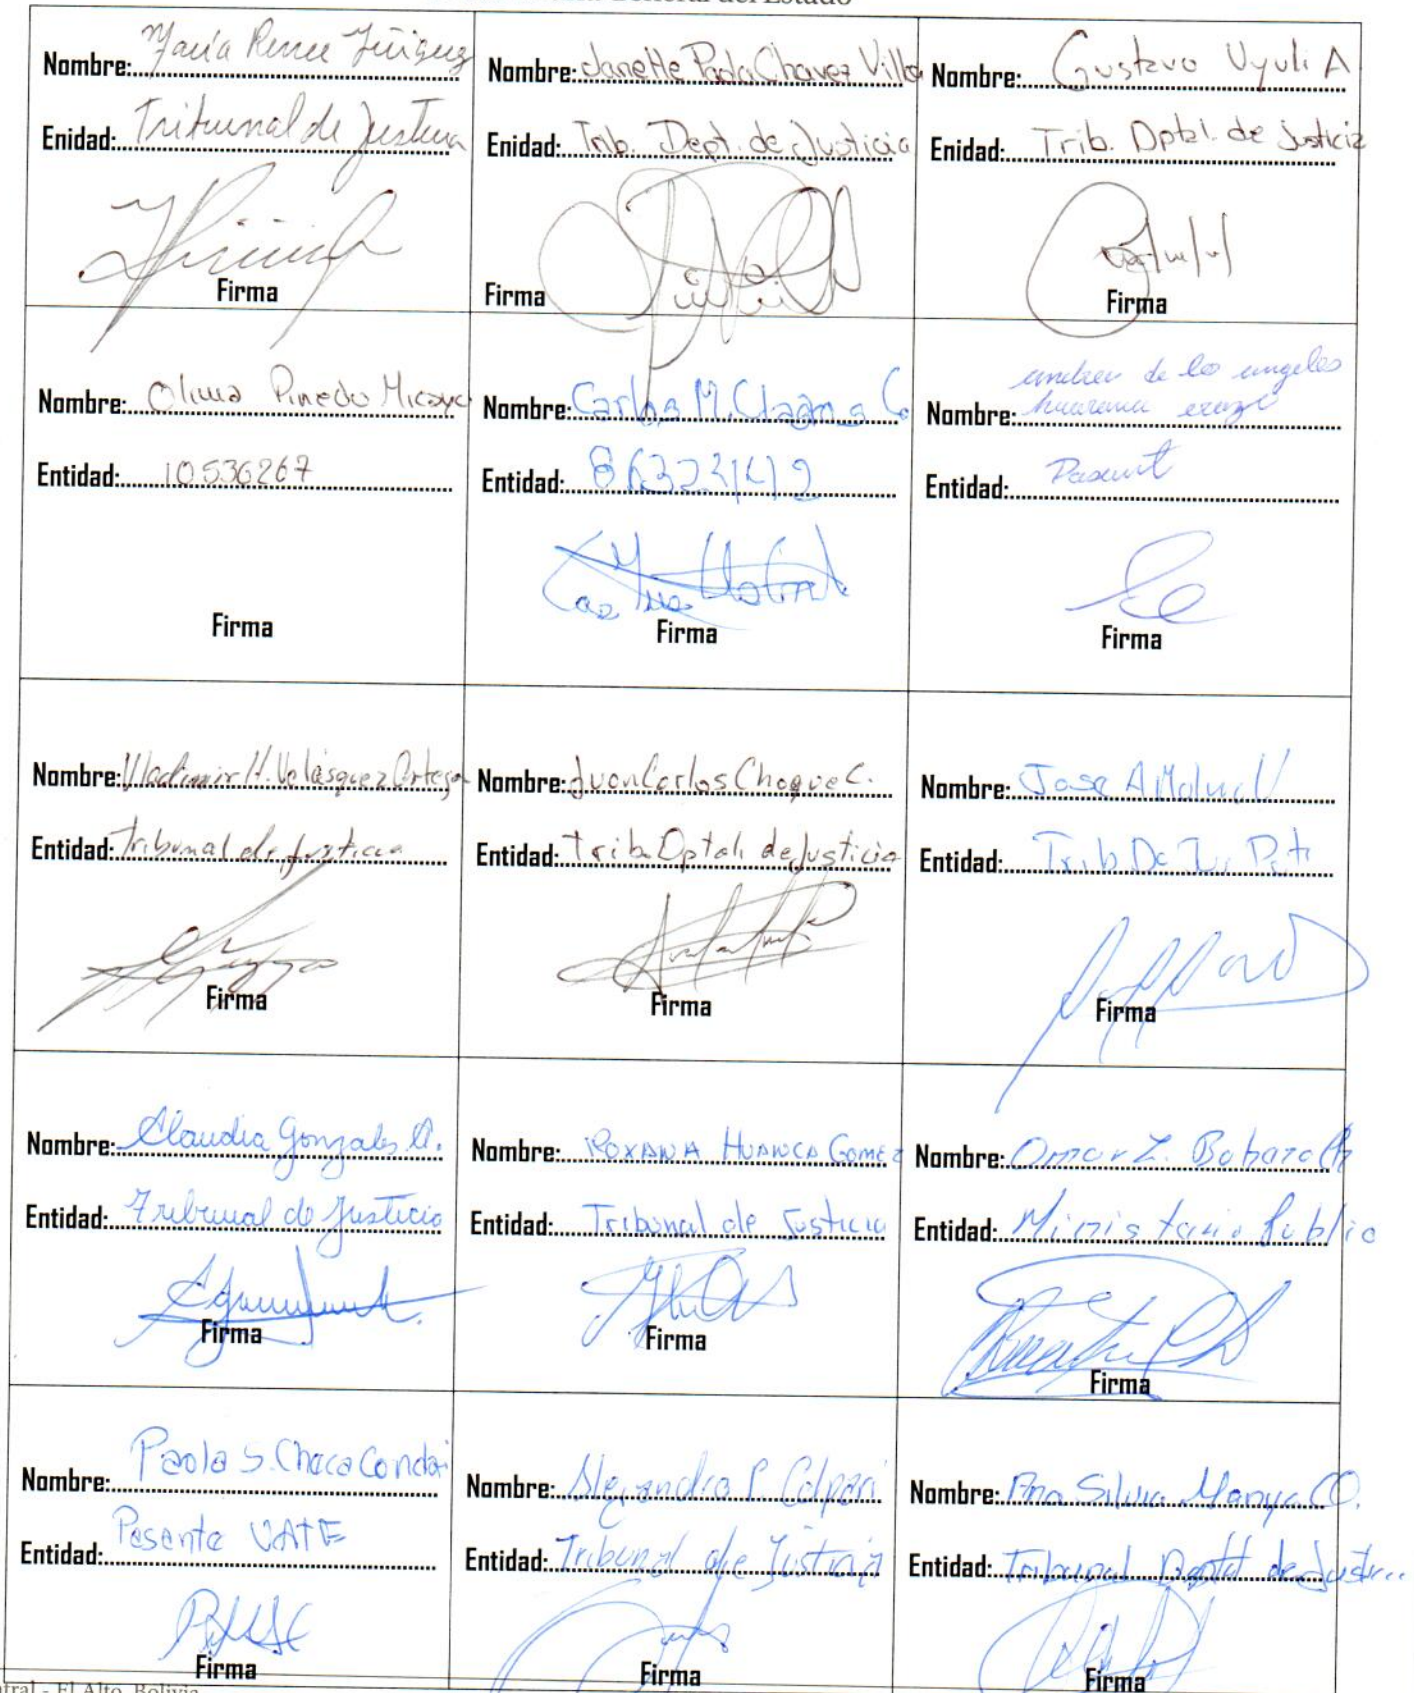 General del Estado
Nombre: María Renee Iñiguez
Enidad: Tribunal de Justicia
Firma
Nombre: Janette Paola Chavez Villa
Enidad: Trib. Dept. de Justicia
Firma
Nombre: Gustavo Uyuli A
Enidad: Trib. Dptal. de Justicia
Firma
Nombre: Pinedo Micaya
Entidad: 10536267
Firma
Nombre: Carlos M.
Entidad:
Firma
Nombre: de los angeles
Entidad:
Firma
Nombre: Vladimir H. Velásquez Ortega
Entidad: Tribunal de justicia
Firma
Nombre: Juan Carlos Choque C.
Entidad: Trib. Dptal. de Justicia
Firma
Nombre: Jose A
Entidad: Trib. De
Firma
Nombre: Claudia Gonzales
Entidad: Tribunal de Justicia
Firma
Nombre: ROXANA HUANCA GOMEZ
Entidad: Tribunal de Justicia
Firma
Nombre: Omar Z.
Entidad: Ministerio Publico
Firma
Nombre: Paola S. Choca Condori
Entidad: Pasante UATE
Firma
Nombre: Alejandra P. Colpari
Entidad: Tribunal de Justicia
Firma
Nombre: Ana Silvia Manya
Entidad: Tribunal Deptal de Justi...
Firma
tral - El Alto, Bolivia